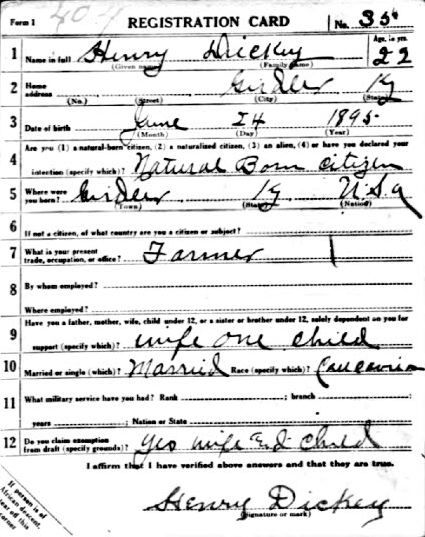 Form 1 REGISTRATION CARD No. 356
Age, in yrs.
1 Name in full Henry Dickey 22
(Given name) (Family name)
2 Home address Girdler Ky
(No.) (Street) (City) (State)
3 Date of birth June 24 1895
(Month) (Day) (Year)
4 Are you (1) a natural-born citizen, (2) a naturalized citizen, (3) an alien, (4) or have you declared your
intention (specify which)? Natural Born Citizen
5 Where were you born? Girdler Ky U.S.a
(Town) (State) (Nation)
6 If not a citizen, of what country are you a citizen or subject?
7 What is your present trade, occupation, or office? Farmer
8 By whom employed?
Where employed?
9 Have you a father, mother, wife, child under 12, or a sister or brother under 12, solely dependent on you for
support (specify which)? wife one child
10 Married or single (which)? Married Race (specify which)? Caucasian
11 What military service have you had? Rank ; branch
years ; Nation or State
12 Do you claim exemption from draft (specify grounds)? Yes wife End child
I affirm that I have verified above answers and that they are true.
Henry Dickey
(Signature or mark)
If person is of
African descent,
tear off this
corner